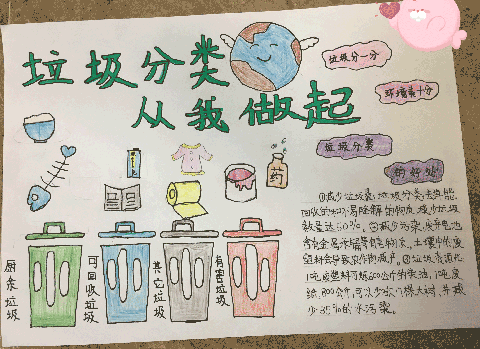 垃圾分类
从我做起
垃圾分一分
环境美十分
垃圾分类
的好处
厨余垃圾
可回收垃圾
其它垃圾
有害垃圾
药
①减少垃圾,垃圾分类去掉能
回收的、不易降解的物质,减少垃圾
数量达50%。②减少污染,废弃电池
含有金属汞镉等有毒物质,土壤中的废
塑料会导致农作物减产。③变废为
1吨废塑料可炼600公斤的柴油,
少35%的水污染。